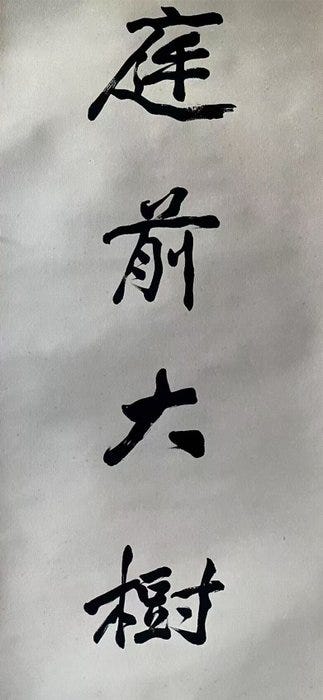 庭前大樹